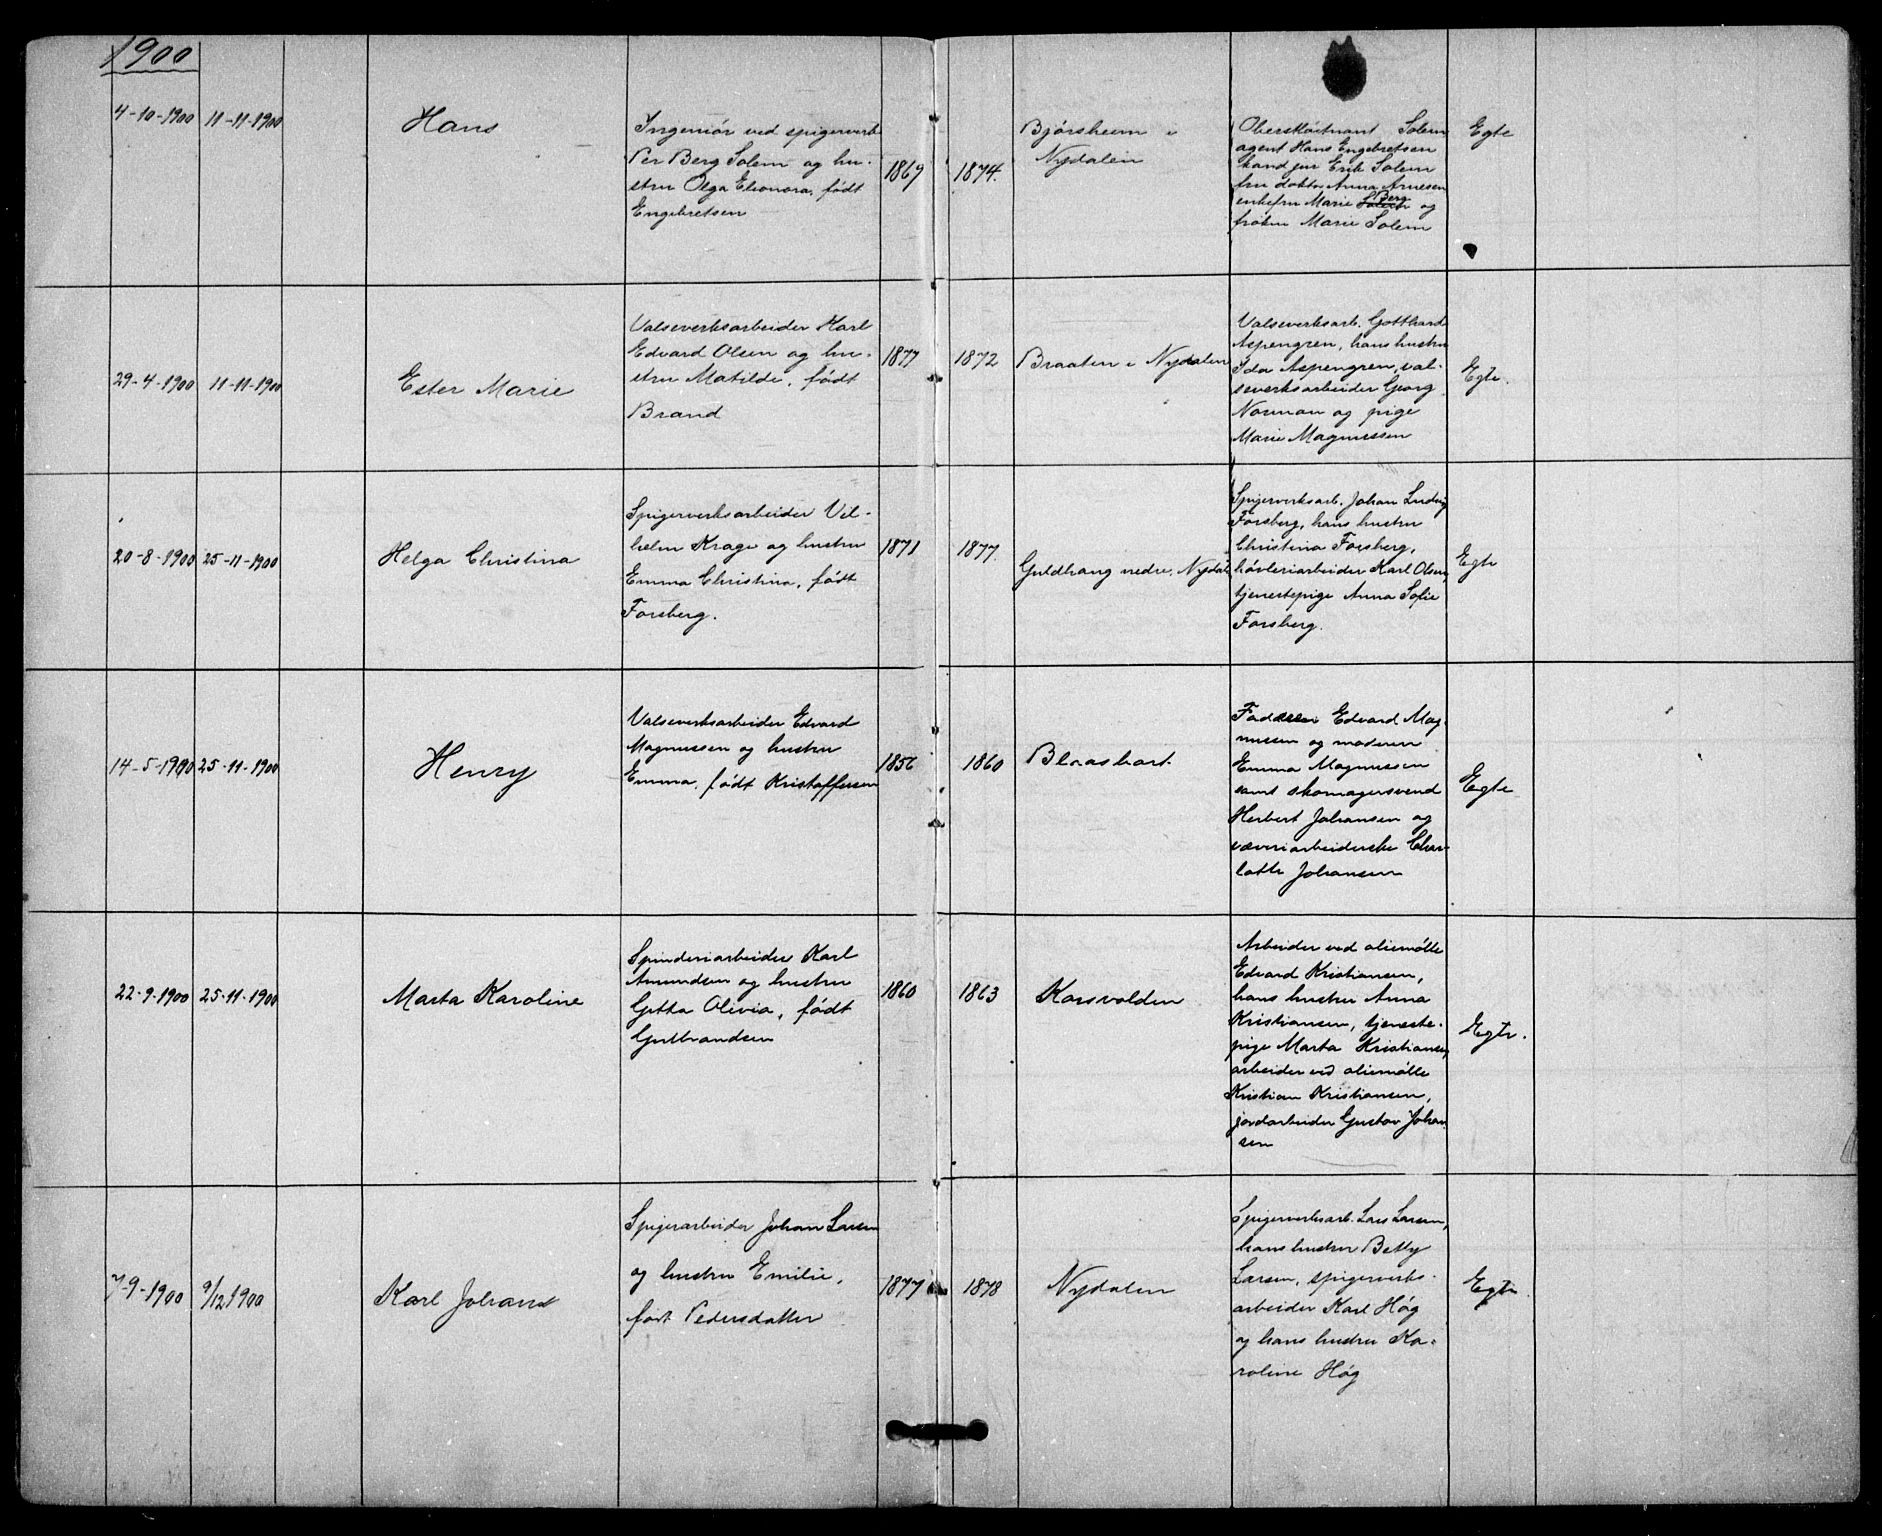 1900
4-10-1900 11-11-1900
Hans
Ingeniør ved spigerverk
Per Berg Solem og hu-
stru Olga Eleonora, født
Engebretsen
1869
1874.
Bjørsheim i
Nydalen
Oberstløitnant Solem
agent Hans Engebretsen
kand jur Erik Solem
fru doktor Anna Arnesen
enkefru Marie Berg og
frøken Marie Solem
Egte
29-4-1900 11-11-1900
Ester Marie
Valseverksarbeider Karl
Edvard Olsen og hu-
stru Matilde, født
Brand
1877
1872
Braaten i Nydalen
Valseverksarb. Gotthard
Aspengren, hans hustru
Ida Aspengren, val-
severksarbeider Georg
Norman og pige
Marie Magnussen
Egte.
20-8-1900 25-11-1900
Helga Christina
Spigerverksarbeider Vil-
helm Krage og hustru
Emma Christina, født
Forsberg.
1871
1877.
Guldhaug nedre, Nydal
Spigerverksarb. Johan Ludvig
Forsberg, hans hustru
Christina Forsberg,
høvleriarbeider Karl Olsen,
tjenestepige Anna Sofie
Forsberg.
Egte
14-5-1900 25-11-1900
Henry
Valseverksarbeider Edvard
Magnussen og hustru
Emma, født Kristoffersen
1856
1860
Blaasbort
Faderen Edvard Mag-
nussen og moderen
Emma Magnussen
samt skomagersvend
Herbert Johansen og
væveriarbeiderske Char-
lotte Johansen
Egte
22-9-1900 25-11-1900
Marta Karoline
Spinderiarbeider Karl
Amundsen og hustru
Gitta Olivia, født
Gulbrandsen
1860
1863
Korsvolden
Arbeider ved oliemølle
Edvard Kristiansen,
hans hustru Anna
Kristiansen, tjeneste-
pige Marta Kristiansen,
arbeider ved oliemølle
Kristian Kristiansen,
jordarbeider Gustav Johan
sen
Egte.
7-9-1900 9/12 1900
Karl Johan
Spigerarbeider Johan Larsen
og hustru Emilie,
født Pedersdatter
1877
1878
Nydalen
Spigerverksarb. Lars Larsen,
hans hustru Betty
Larsen, spigerverks-
arbeider Karl Høg
og hans hustru Ka-
roline Høg
Egte.